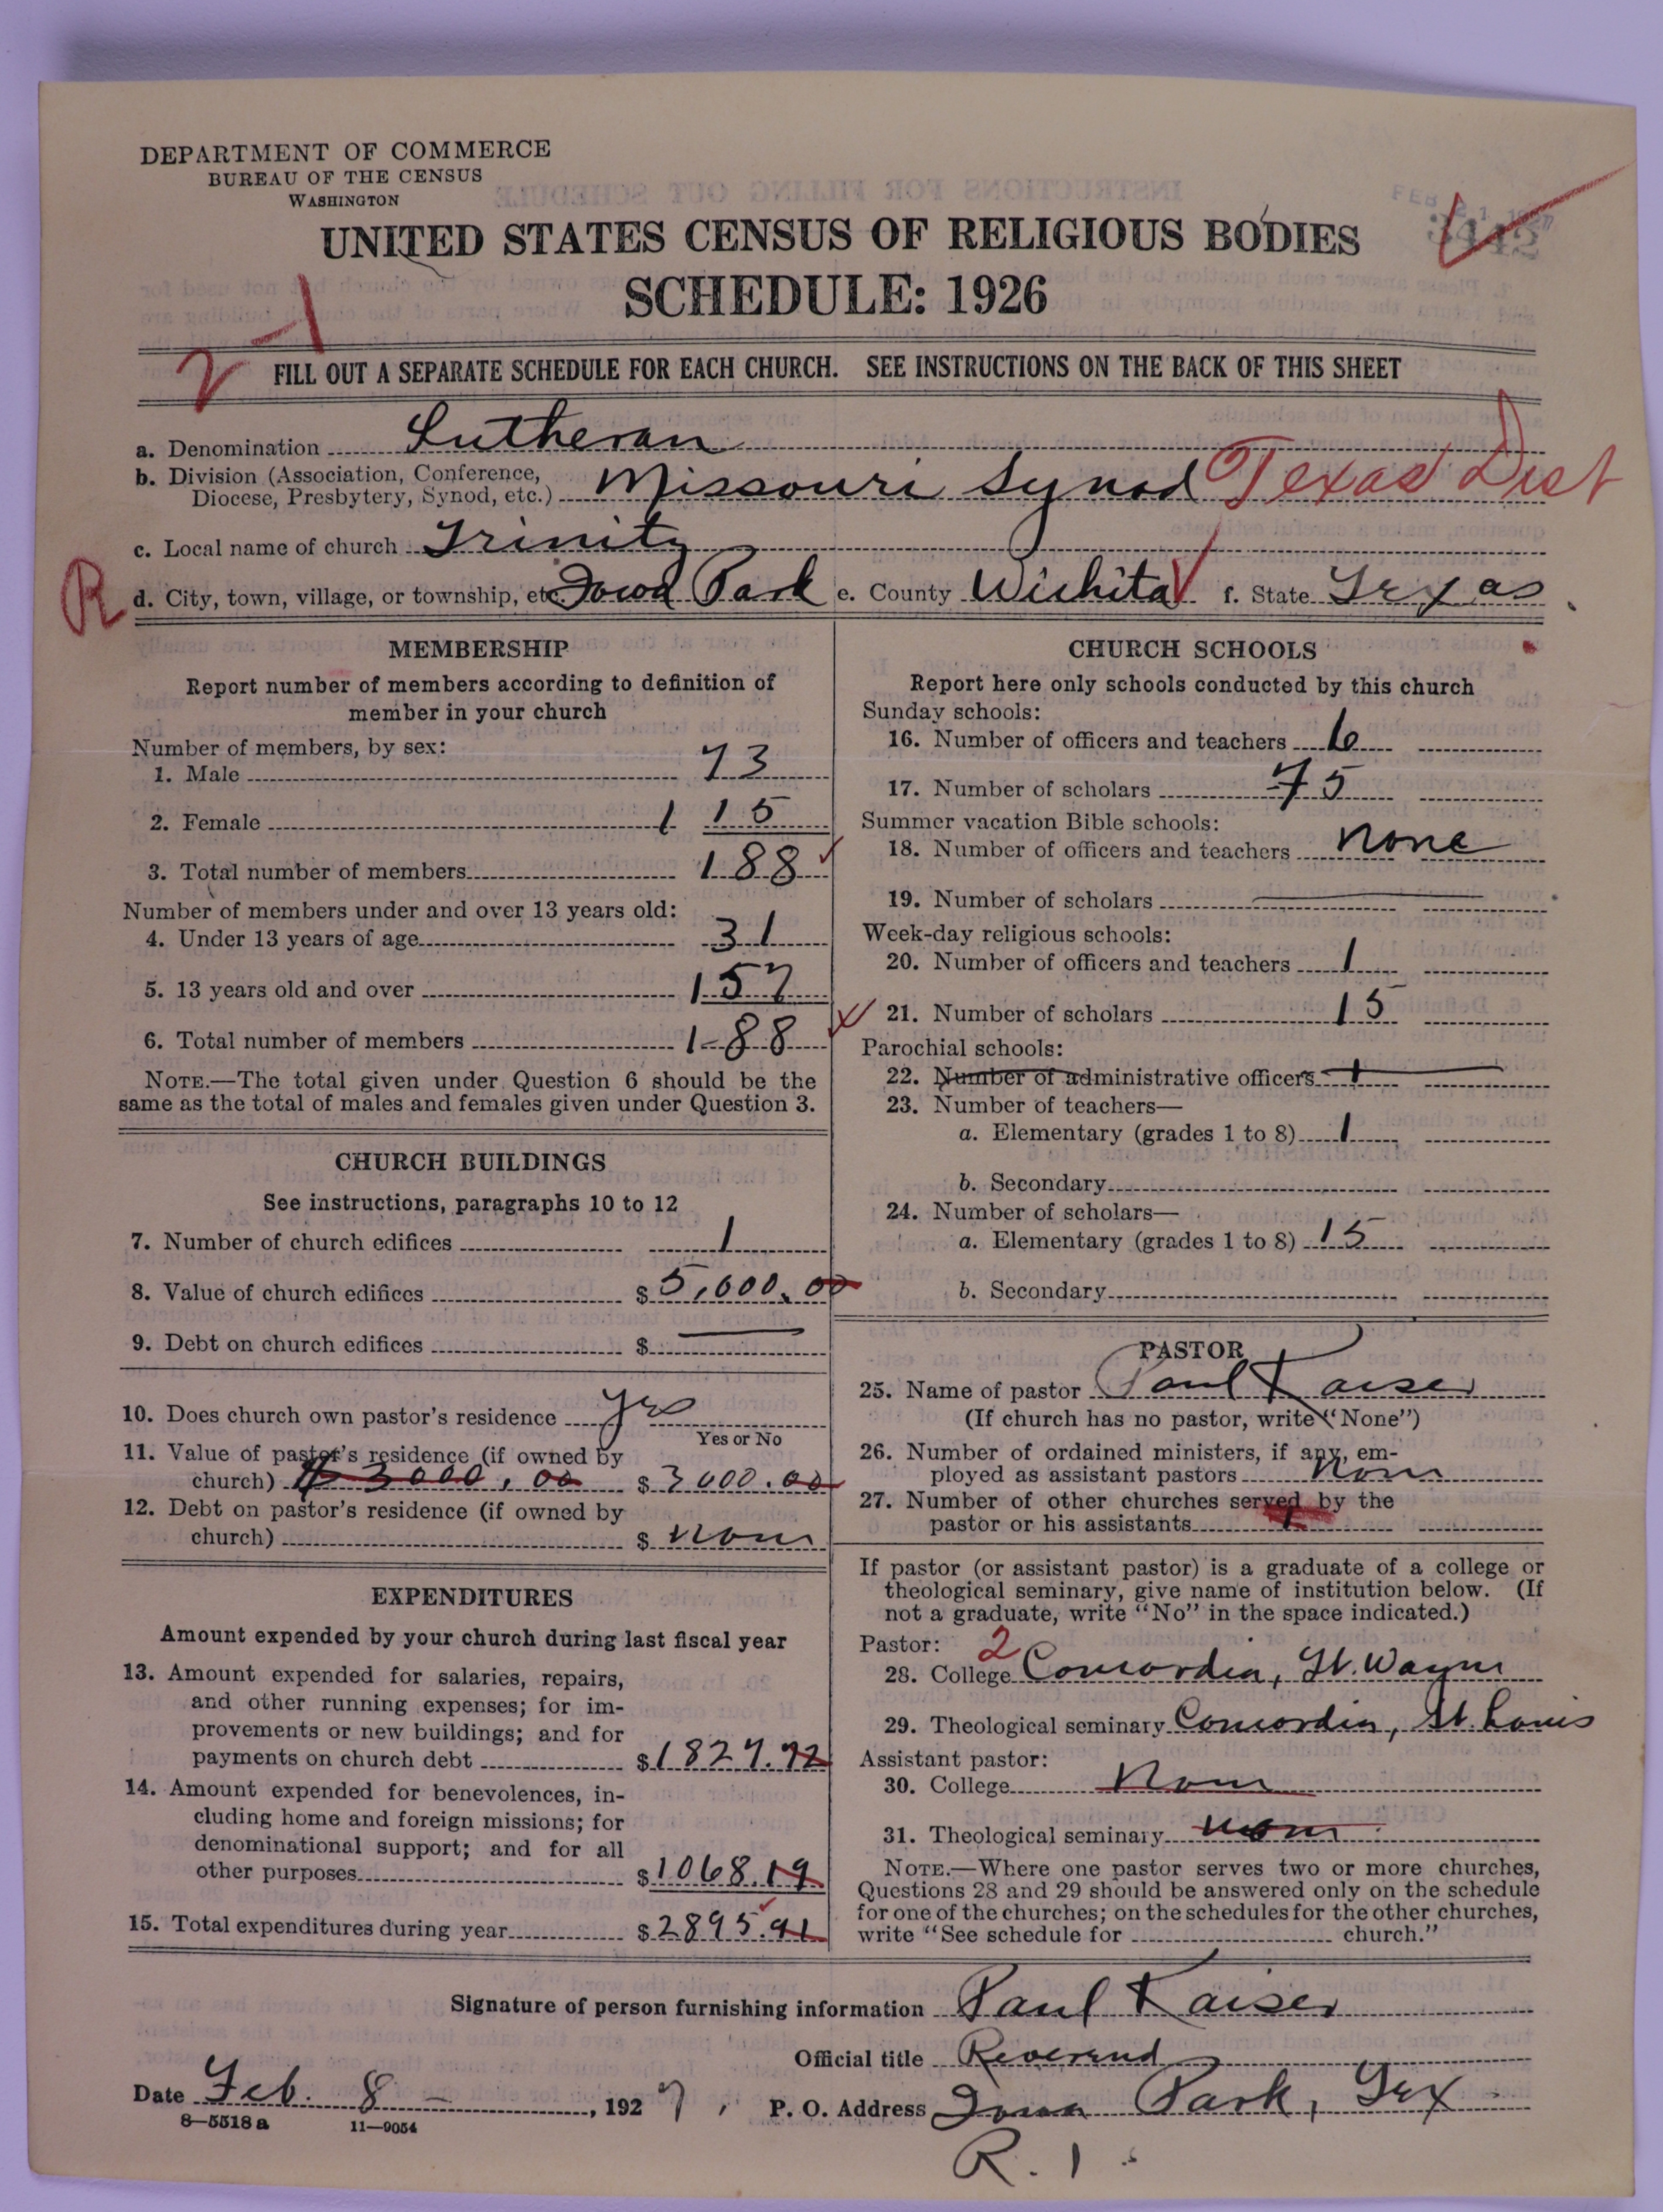 DEPARTMENT OF COMMERCE
BUREAU OF THE CENSUS
WASHINGTON
UNITED STATES CENSUS OF RELIGIOUS BODIES
SCHEDULE: 1926
FILL OUT A SEPARATE SCHEDULE FOR EACH CHURCH. SEE INSTRUCTIONS ON THE BACK OF THIS SHEET
a. Denomination Lutheran
b. Division (Association, Conference,
Diocese, Presbytery, Synod, etc.) Missouri Synod Texas Dist
c. Local name of church Trinity
R d. City, town, village, or township, etc Iowa Park e. County Wichita f. State Texas
MEMBERSHIP
Report number of members according to definition of
member in your church
Number of members, by sex:
1. Male 73
2. Female 115
3. Total number of members 188
Number of members under and over 13 years old:
4. Under 13 years of age 31
5. 13 years old and over 157
6. Total number of members 188
NOTE.—The total given under Question 6 should be the
same as the total of males and females given under Question 3.
CHURCH BUILDINGS
See instructions, paragraphs 10 to 12
7. Number of church edifices 1
8. Value of church edifices $ 5,000.00
9. Debt on church edifices $
10. Does church own pastor's residence yes
Yes or No
11. Value of pastor's residence (if owned by
church) $3000,00 $ 3000.00
12. Debt on pastor's residence (if owned by
church) $ none
EXPENDITURES
Amount expended by your church during last fiscal year
13. Amount expended for salaries, repairs,
and other running expenses; for im-
provements or new buildings; and for
payments on church debt $ 1827.72
14. Amount expended for benevolences, in-
cluding home and foreign missions; for
denominational support; and for all
other purposes $ 1068.19
15. Total expenditures during year $ 2895.91
CHURCH SCHOOLS
Report here only schools conducted by this church
Sunday schools:
16. Number of officers and teachers 6
17. Number of scholars 75
Summer vacation Bible schools:
18. Number of officers and teachers none
19. Number of scholars
Week-day religious schools:
20. Number of officers and teachers 1
21. Number of scholars 15
Parochial schools:
22. Number of administrative officers 1
23. Number of teachers—
a. Elementary (grades 1 to 8) 1
b. Secondary
24. Number of scholars—
a. Elementary (grades 1 to 8) 15
b. Secondary
PASTOR
25. Name of pastor Paul Kaiser
(If church has no pastor, write "None")
26. Number of ordained ministers, if any, em-
ployed as assistant pastors none
27. Number of other churches served by the
pastor or his assistants 1
If pastor (or assistant pastor) is a graduate of a college or
theological seminary, give name of institution below. (If
not a graduate, write "No" in the space indicated.)
Pastor: 2
28. College Concordia, Ft. Wayne
29. Theological seminary Concordia, St. Louis
Assistant pastor:
30. College none
31. Theological seminary none
NOTE.—Where one pastor serves two or more churches,
Questions 28 and 29 should be answered only on the schedule
for one of the churches; on the schedules for the other churches,
write "See schedule for church."
Signature of person furnishing information Paul Kaiser
Official title Reverend
Date Feb. 8 - , 1927, P. O. Address Iowa Park, Tex
8—5518 a 11—9054
R. 1